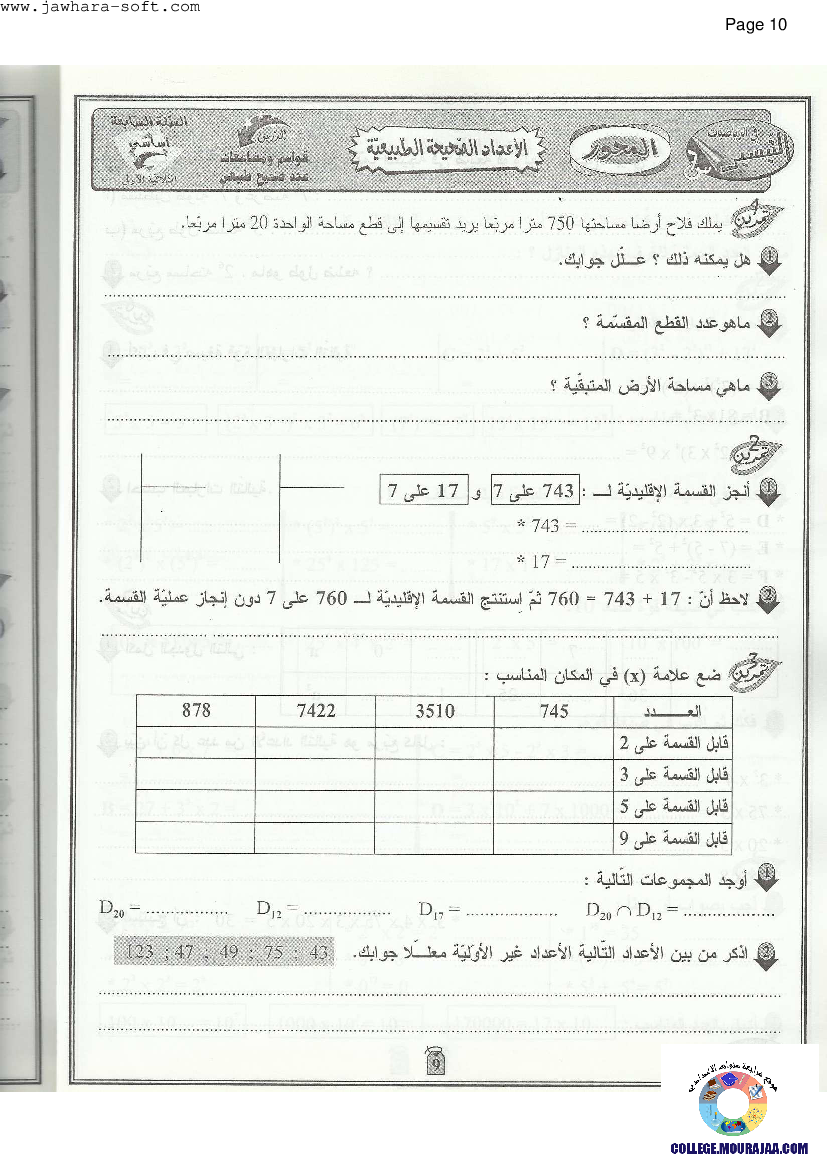 www.jawhara-soft.com
Page 10
السنة السابعة أساسي
الثلاثي الأول
الدرس
قواسم ومضاعفات عدد صحيح طبيعي
الأعداد الصحيحة الطبيعية
المحور
في الرياضيات
تمرين 1 يملك فلاح أرضا مساحتها 750 مترا مربّعا يريد تقسيمها إلى قطع مساحة الواحدة 20 مترا مربّعا.
1 هل يمكنه ذلك ؟ علّل جوابك.
2 ماهو عدد القطع المقسّمة ؟
3 ماهي مساحة الأرض المتبقّية ؟
تمرين 2
1 أنجز القسمة الإقليديّة لـ : 743 على 7 و 17 على 7
* 743 = ..............................
* 17 = ..............................
2 لاحظ أنّ : 17 + 743 = 760 ثمّ إستنتج القسمة الإقليديّة لـ 760 على 7 دون إنجاز عمليّة القسمة.
تمرين 3 ضع علامة (x) في المكان المناسب :
العـــدد 745 3510 7422 878
قابل القسمة على 2
قابل القسمة على 3
قابل القسمة على 5
قابل القسمة على 9
1 أوجد المجموعات التّالية :
D20 = .................... D12 = .................... D17 = .................... D20 ∩ D12 = ....................
2 اذكر من بين الأعداد التّالية الأعداد غير الأوّليّة معلّلا جوابك. 43 ; 75 ; 49 ; 47 ; 123
9
موقع مراجعة
COLLEGE.MOURAJAA.COM